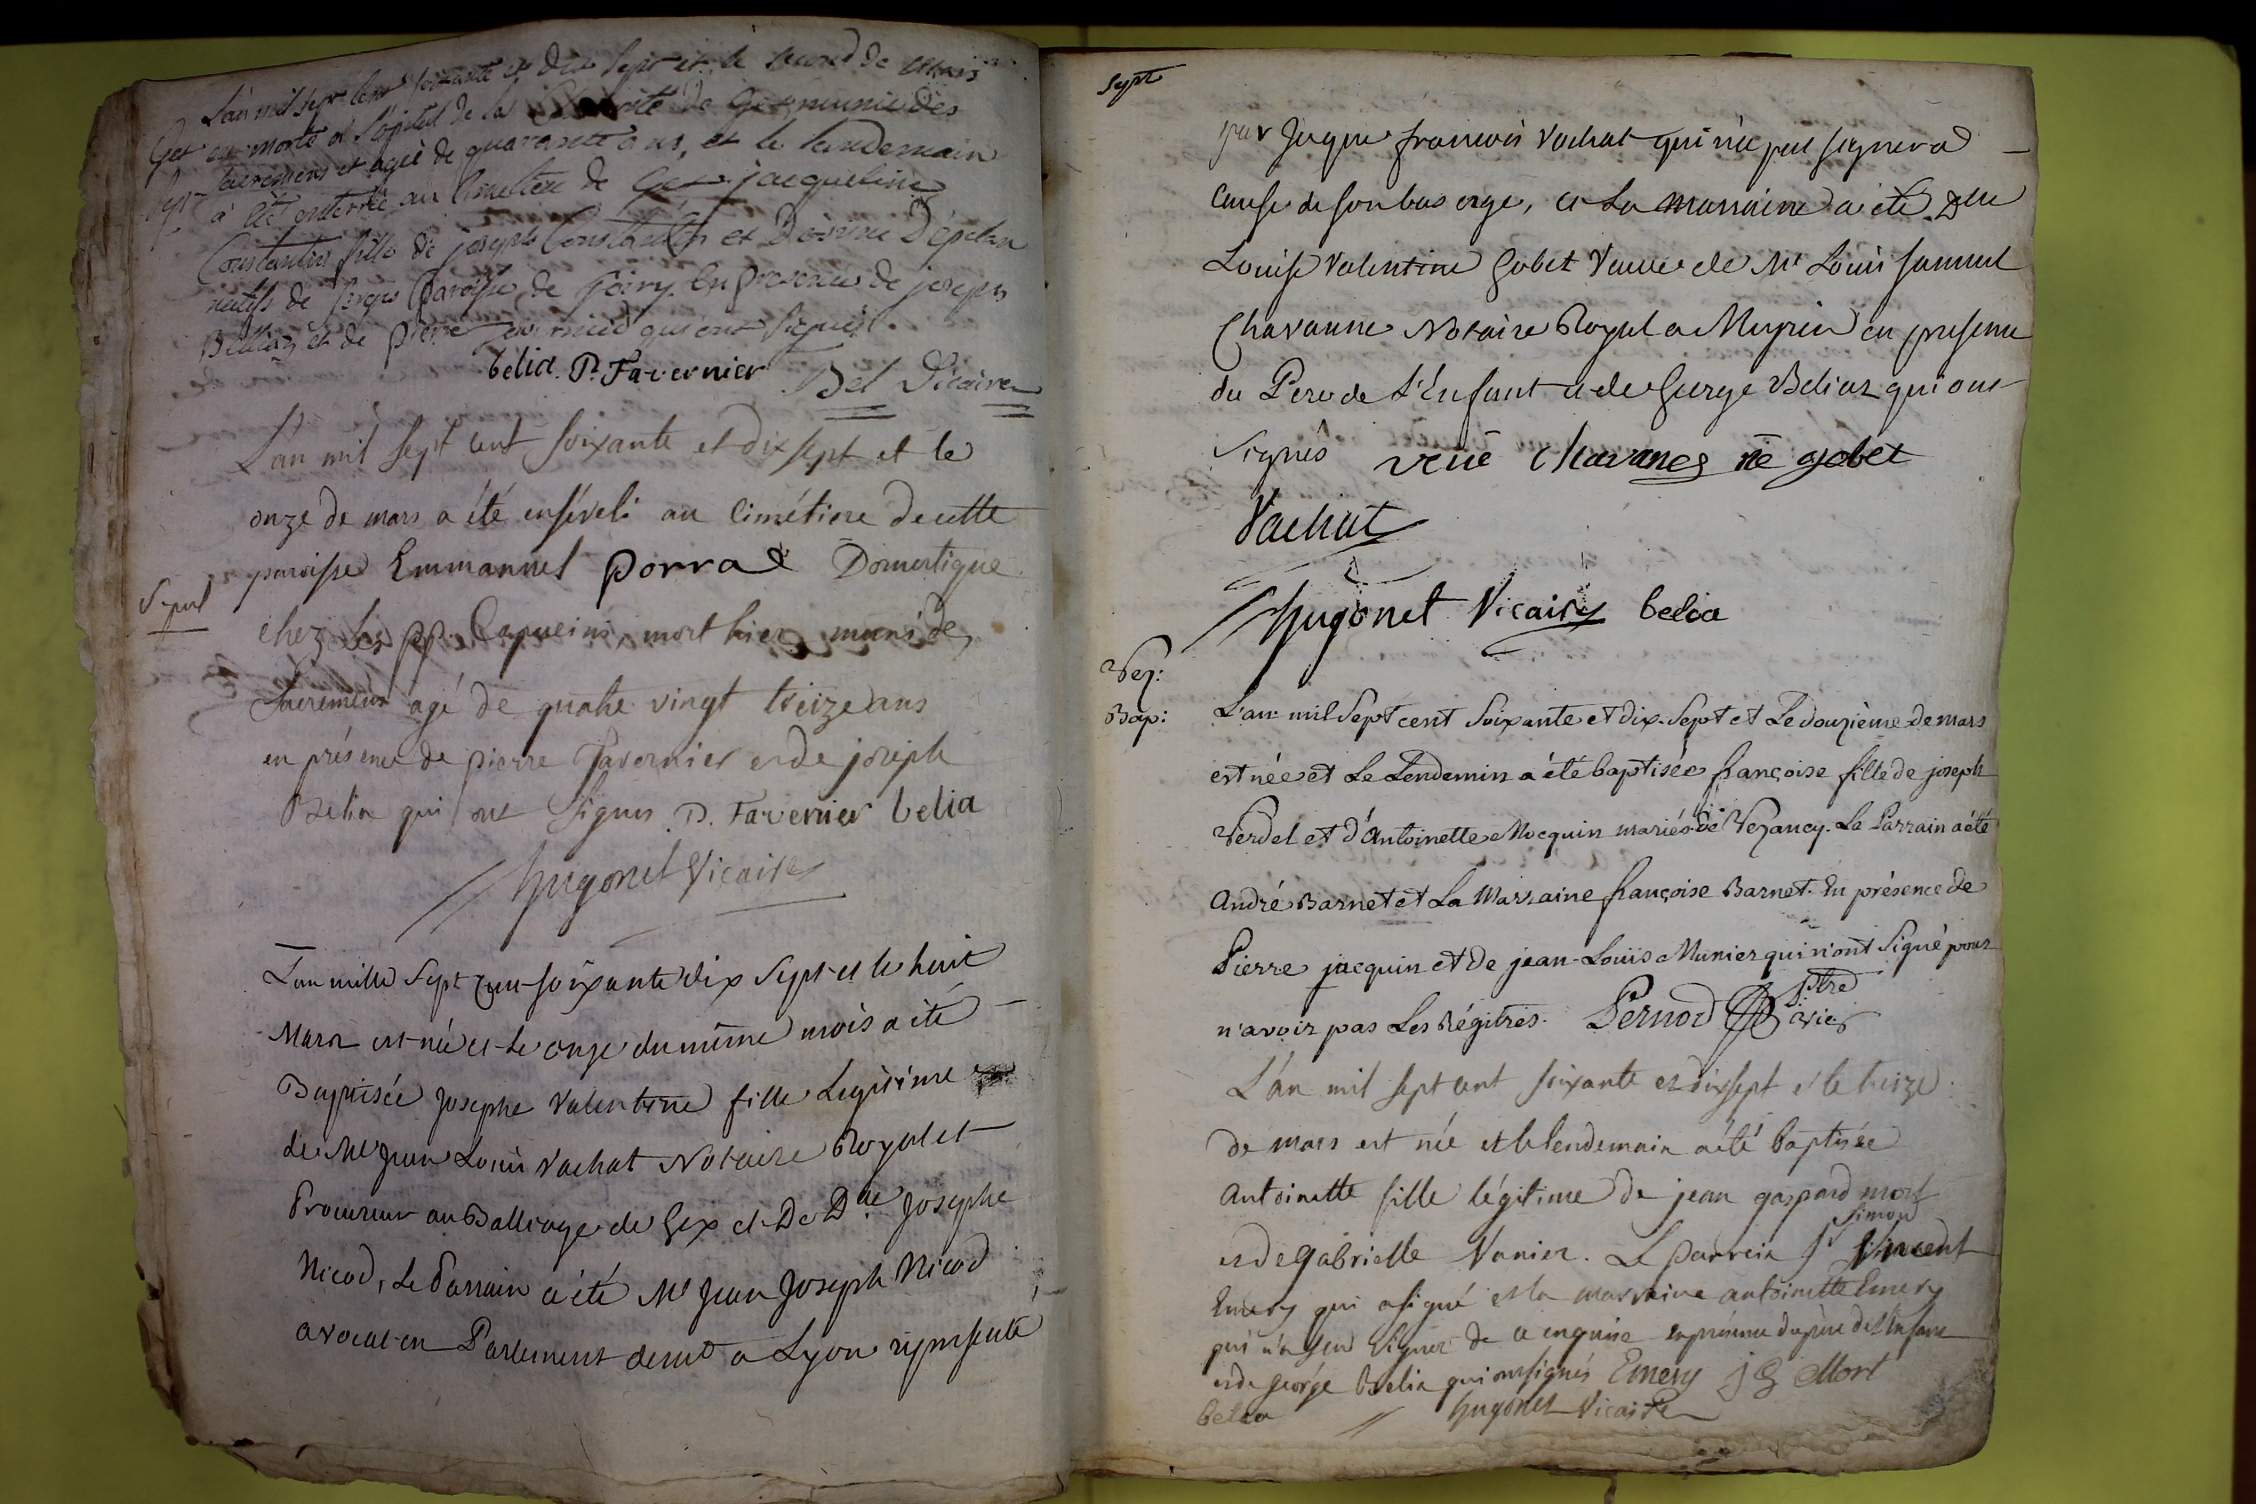 L'an mil sept cent soixante et dix sept et le second de mars
Gex est morte a l'opital de la Charité de Gex munie des
sepr sacremens et agée de quarante ans, et le landemain
à été enterrée au Cimettere de Gex jacqueline
Constantin fille de joseph Constantin et
natifs de paroisse de En presence de joseph
et de pierre qui ont signés.
belia P. Favernier Bel Vicaire
L'an mil sept cent soixante et dix sept et le
onze de mars a été enséveli au cimétiere de cette
paroisse Emmanuel Porral Domestique
Sepul
chez Les pp. Capucins, mort hier muni des
Sacremens agé de quatre vingt treize ans
en présence de pierre Favernier et de joseph
Belia qui ont signes P. Favernier belia
hugonet Vicaire
L'an mille sept cent soixante dix sept et le huit
Mars est née et le onze du même mois a été
Baptisée Josephe Valentine fille Legitime
de Me Jean Louis Vachat Notaire Royal et
Procureur au Balliage de Gex et De Dlle Josephe
Nicod, Le Parrain a été Me Jean Joseph Nicod
avocat en Parlement demt a Lyon represente
Sept
par Jaque francois Vachat qui n'a pas signé a
cause de son bas age, et La marraine a été Dlle
Louise Valentine Gobet Veuve de Mr Louis samuel
Chavanne Notaire Royal a Meyrin en presence
du Pere de L'Enfant et de George Beliaz qui ont
signés veuë Chavanes né gobet
Vachat
hugonet Vicaire belia
Vez:
Bap: L'an mil Sept cent Soixante et dix-Sept et Le douzième de mars
est née et Le Lendemin a été baptisée françoise fille de joseph
Verdel et d'Antoinette Mocquin mariés de Vezancy. Le Parrain a été
André Barnet et La Marraine françoise Barnet. En présence de
Pierre jacquin et de jean-Louis Munier qui n'ont Signé pour
n'avoir pas Les Régitres. Pernod ptre vic
L'an mil sept cent soixante et dixsept et le treize
de mars est née et le lendemain a été baptisée
Antoinette fille légitime de jean gaspard mort
et de gabrielle Vanier. Le parrein Sr Simond Vincent
Emery qui a signé et la marraine antoinette Emery
qui n'a seu signer de ce enquise en présence du père de l'Enfant
et de george Belia qui ont signés Emery J G Mort
belia hugonet Vicaire